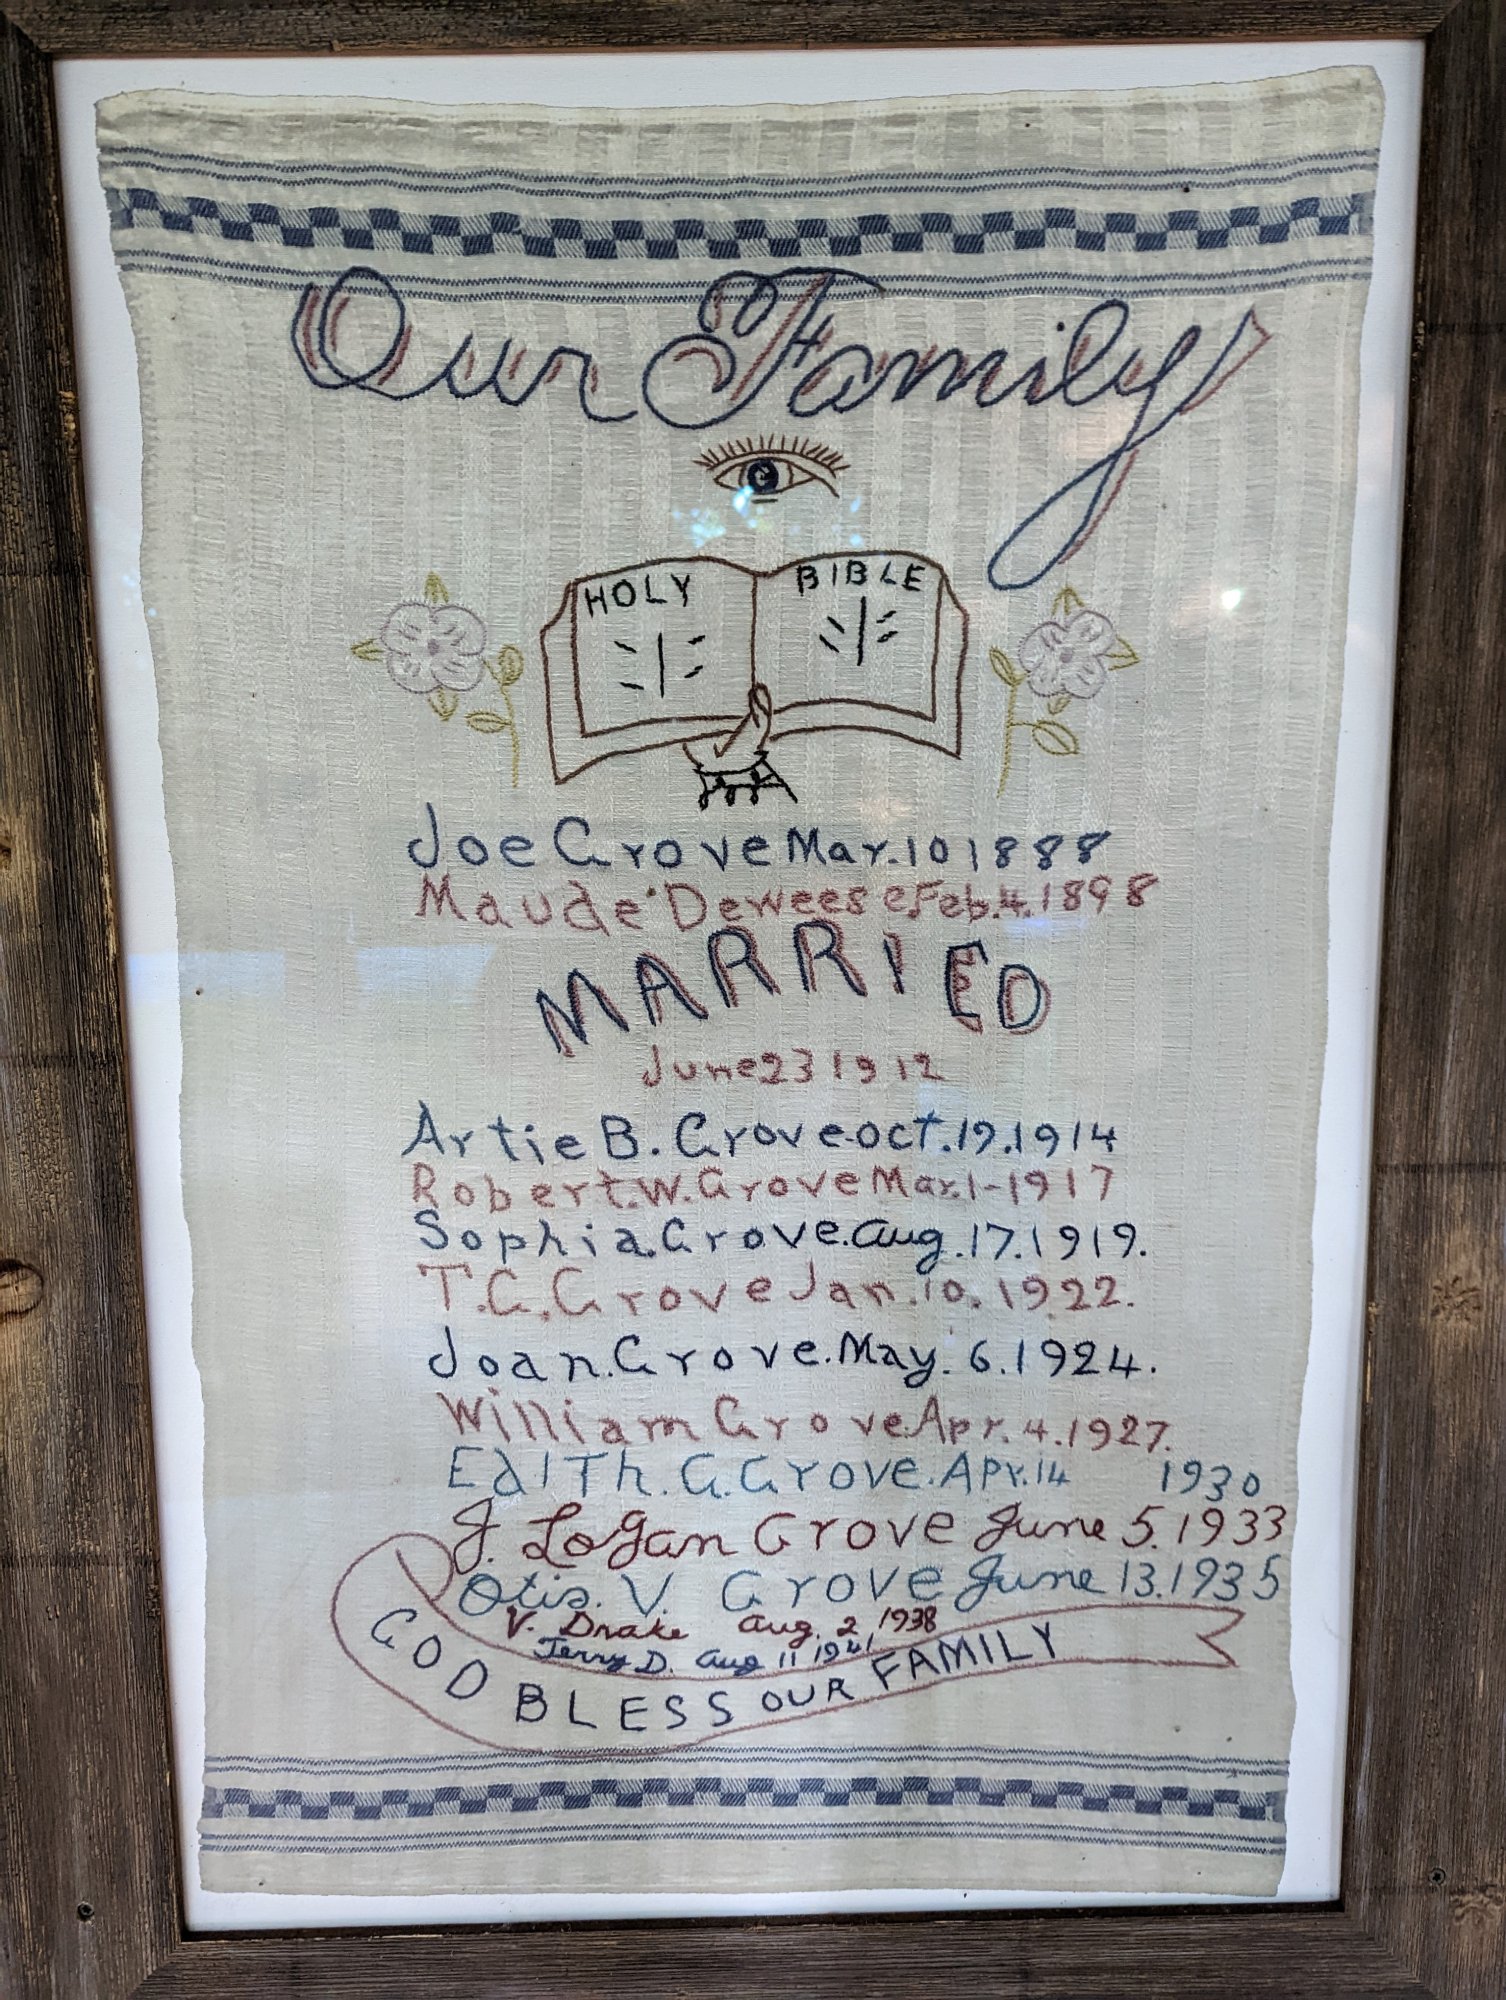 Our Family
HOLY BIBLE
Joe Grove Mar. 10 1888
Maude Deweese Feb. 4. 1898
MARRIED
June 23 1912
Artie B. Grove oct. 19. 1914
Robert. W. Grove Mar. 1 - 1917
Sophia. Grove. Aug. 17. 1919.
T. G. Grove Jan. 10. 1922.
Joan. Grove. May. 6. 1924.
William Grove. Apr. 4. 1927.
EdITh. G. Grove. Apr. 14 1930
J. Logan Grove June 5. 1933
Otis. V. Grove June 13. 1935
V. Drake Aug. 2, 1938
Jerry D. Aug 11 1941
GOD BLESS OUR FAMILY